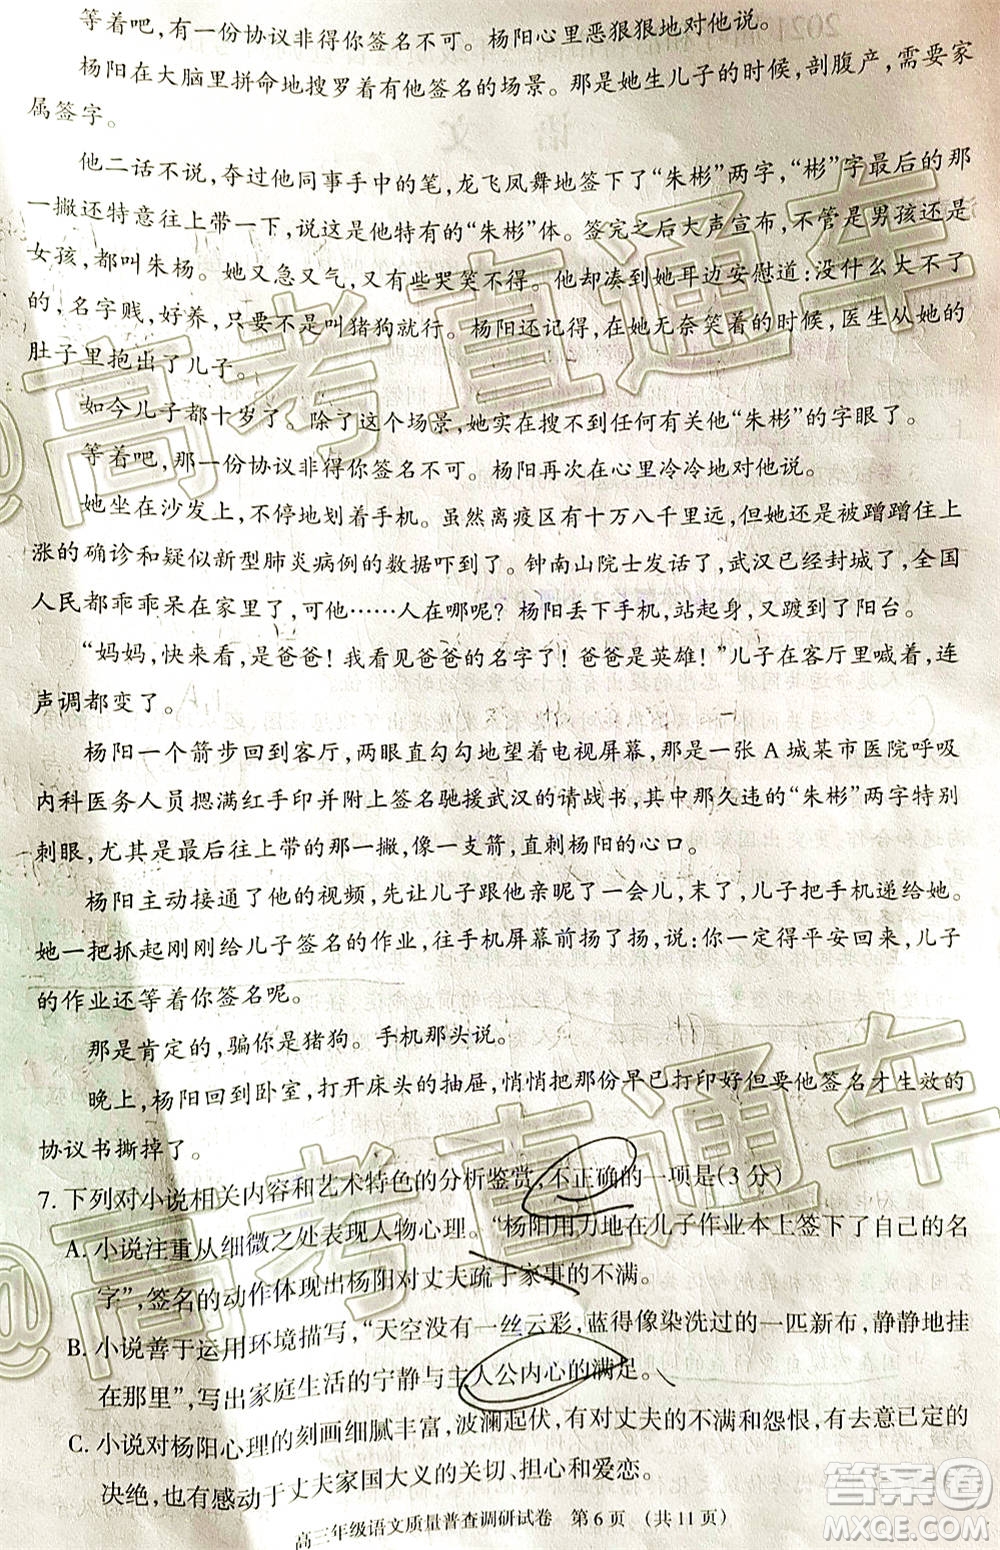 等着吧，有一份协议非得你签名不可。杨阳心里恶狠狠地对他说。
杨阳在大脑里拼命地搜罗着有他签名的场景。那是她生儿子的时候，剖腹产，需要家
属签字。
他二话不说，夺过他同事手中的笔，龙飞凤舞地签下了“朱彬”两字，“彬”字最后的那
一撇还特意往上带一下，说这是他特有的“朱彬”体。签完之后大声宣布，不管是男孩还是
女孩，都叫朱杨。她又急又气，又有些哭笑不得。他却凑到她耳边安慰道：没什么大不了
的，名字贱，好养，只要不是叫猪狗就行。杨阳还记得，在她无奈笑着的时候，医生从她的
肚子里抱出了儿子。
如今儿子都十岁了。除了这个场景，她实在搜不到任何有关他“朱彬”的字眼了。
等着吧，那一份协议非得你签名不可。杨阳再次在心里冷冷地对他说。
她坐在沙发上，不停地划着手机。虽然离疫区有十万八千里远，但她还是被蹭蹭往上
涨的确诊和疑似新型肺炎病例的数据吓到了。钟南山院士发话了，武汉已经封城了，全国
人民都乖乖呆在家里了，可他……人在哪呢？杨阳丢下手机，站起身，又踱到了阳台。
“妈妈，快来看，是爸爸！我看见爸爸的名字了！爸爸是英雄！”儿子在客厅里喊着，连
声调都变了。
杨阳一个箭步回到客厅，两眼直勾勾地望着电视屏幕，那是一张 A 城某市医院呼吸
内科医务人员摁满红手印并附上签名驰援武汉的请战书，其中那久违的“朱彬”两字特别
刺眼，尤其是最后往上带的那一撇，像一支箭，直刺杨阳的心口。
杨阳主动接通了他的视频，先让儿子跟他亲昵了一会儿，末了，儿子把手机递给她。
她一把抓起刚刚给儿子签名的作业，往手机屏幕前扬了扬，说：你一定得平安回来，儿子
的作业还等着你签名呢。
那是肯定的，骗你是猪狗。手机那头说。
晚上，杨阳回到卧室，打开床头的抽屉，悄悄把那份早已打印好但要他签名才生效的
协议书撕掉了。
7. 下列对小说相关内容和艺术特色的分析鉴赏，不正确的一项是（3 分）
A. 小说注重从细微之处表现人物心理。“杨阳用力地在儿子作业本上签下了自己的名
字”，签名的动作体现出杨阳对丈夫疏于家事的不满。
B. 小说善于运用环境描写，“天空没有一丝云彩，蓝得像染洗过的一匹新布，静静地挂
在那里”，写出家庭生活的宁静与主人公内心的满足。
C. 小说对杨阳心理的刻画细腻丰富，波澜起伏，有对丈夫的不满和怨恨，有去意已定的
决绝，也有感动于丈夫家国大义的关切、担心和爱恋。
高三年级语文质量普查调研试卷 第 6 页 （共 11 页）
@高考直通车
@高考直通车
答案圈
MXQE.COM